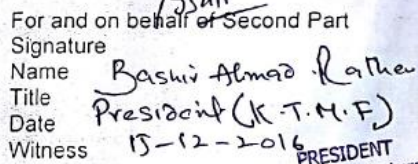 For and on behalf of Second Part
Signature
Name Bashir Ahmad Rather
Title President (K.T.M.F)
Date 15-12-2016
Witness PRESIDENT